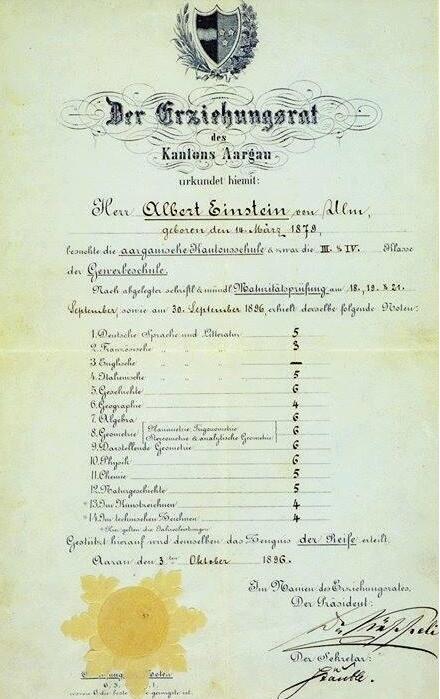 Der Erziehungsrat
des
Kantons Aargau
urkundet hiemit:
Herr Albert Einstein von Ulm,
geboren den 14. März 1879,
besuchte die aargauische Kantonsschule & zwar die III. & IV. Klasse
der Gewerbeschule.
Nach abgelegter schriftl. & mündl. Maturitätsprüfung am 18., 19. & 21.
September, sowie am 30. September 1896, erhielt derselbe folgende Noten:
1. Deutsche Sprache und Litteratur 5
2. Französische „ „ 3
3. Englische „ „ —
4. Italienische „ „ 5
5. Geschichte 6
6. Geographie 4
7. Algebra 6
8. Geometrie (Planimetrie, Trigonometrie 6
Stereometrie & analytische Geometrie)
9. Darstellende Geometrie 6
10. Physik 6
11. Chemie 5
12. Naturgeschichte 5
*13. Im Kunstzeichnen 4
*14. Im technischen Zeichnen 4
* Hier gelten die Jahresleistungen.
Gestützt hierauf wird demselben das Zeugnis der Reife erteilt.
Aarau den 3ten Oktober 1896.
Im Namen des Erziehungsrates,
Der Präsident:
Der Sekretär:
Noten
6, 5, 1,
wovon 6 die beste geringste ist.